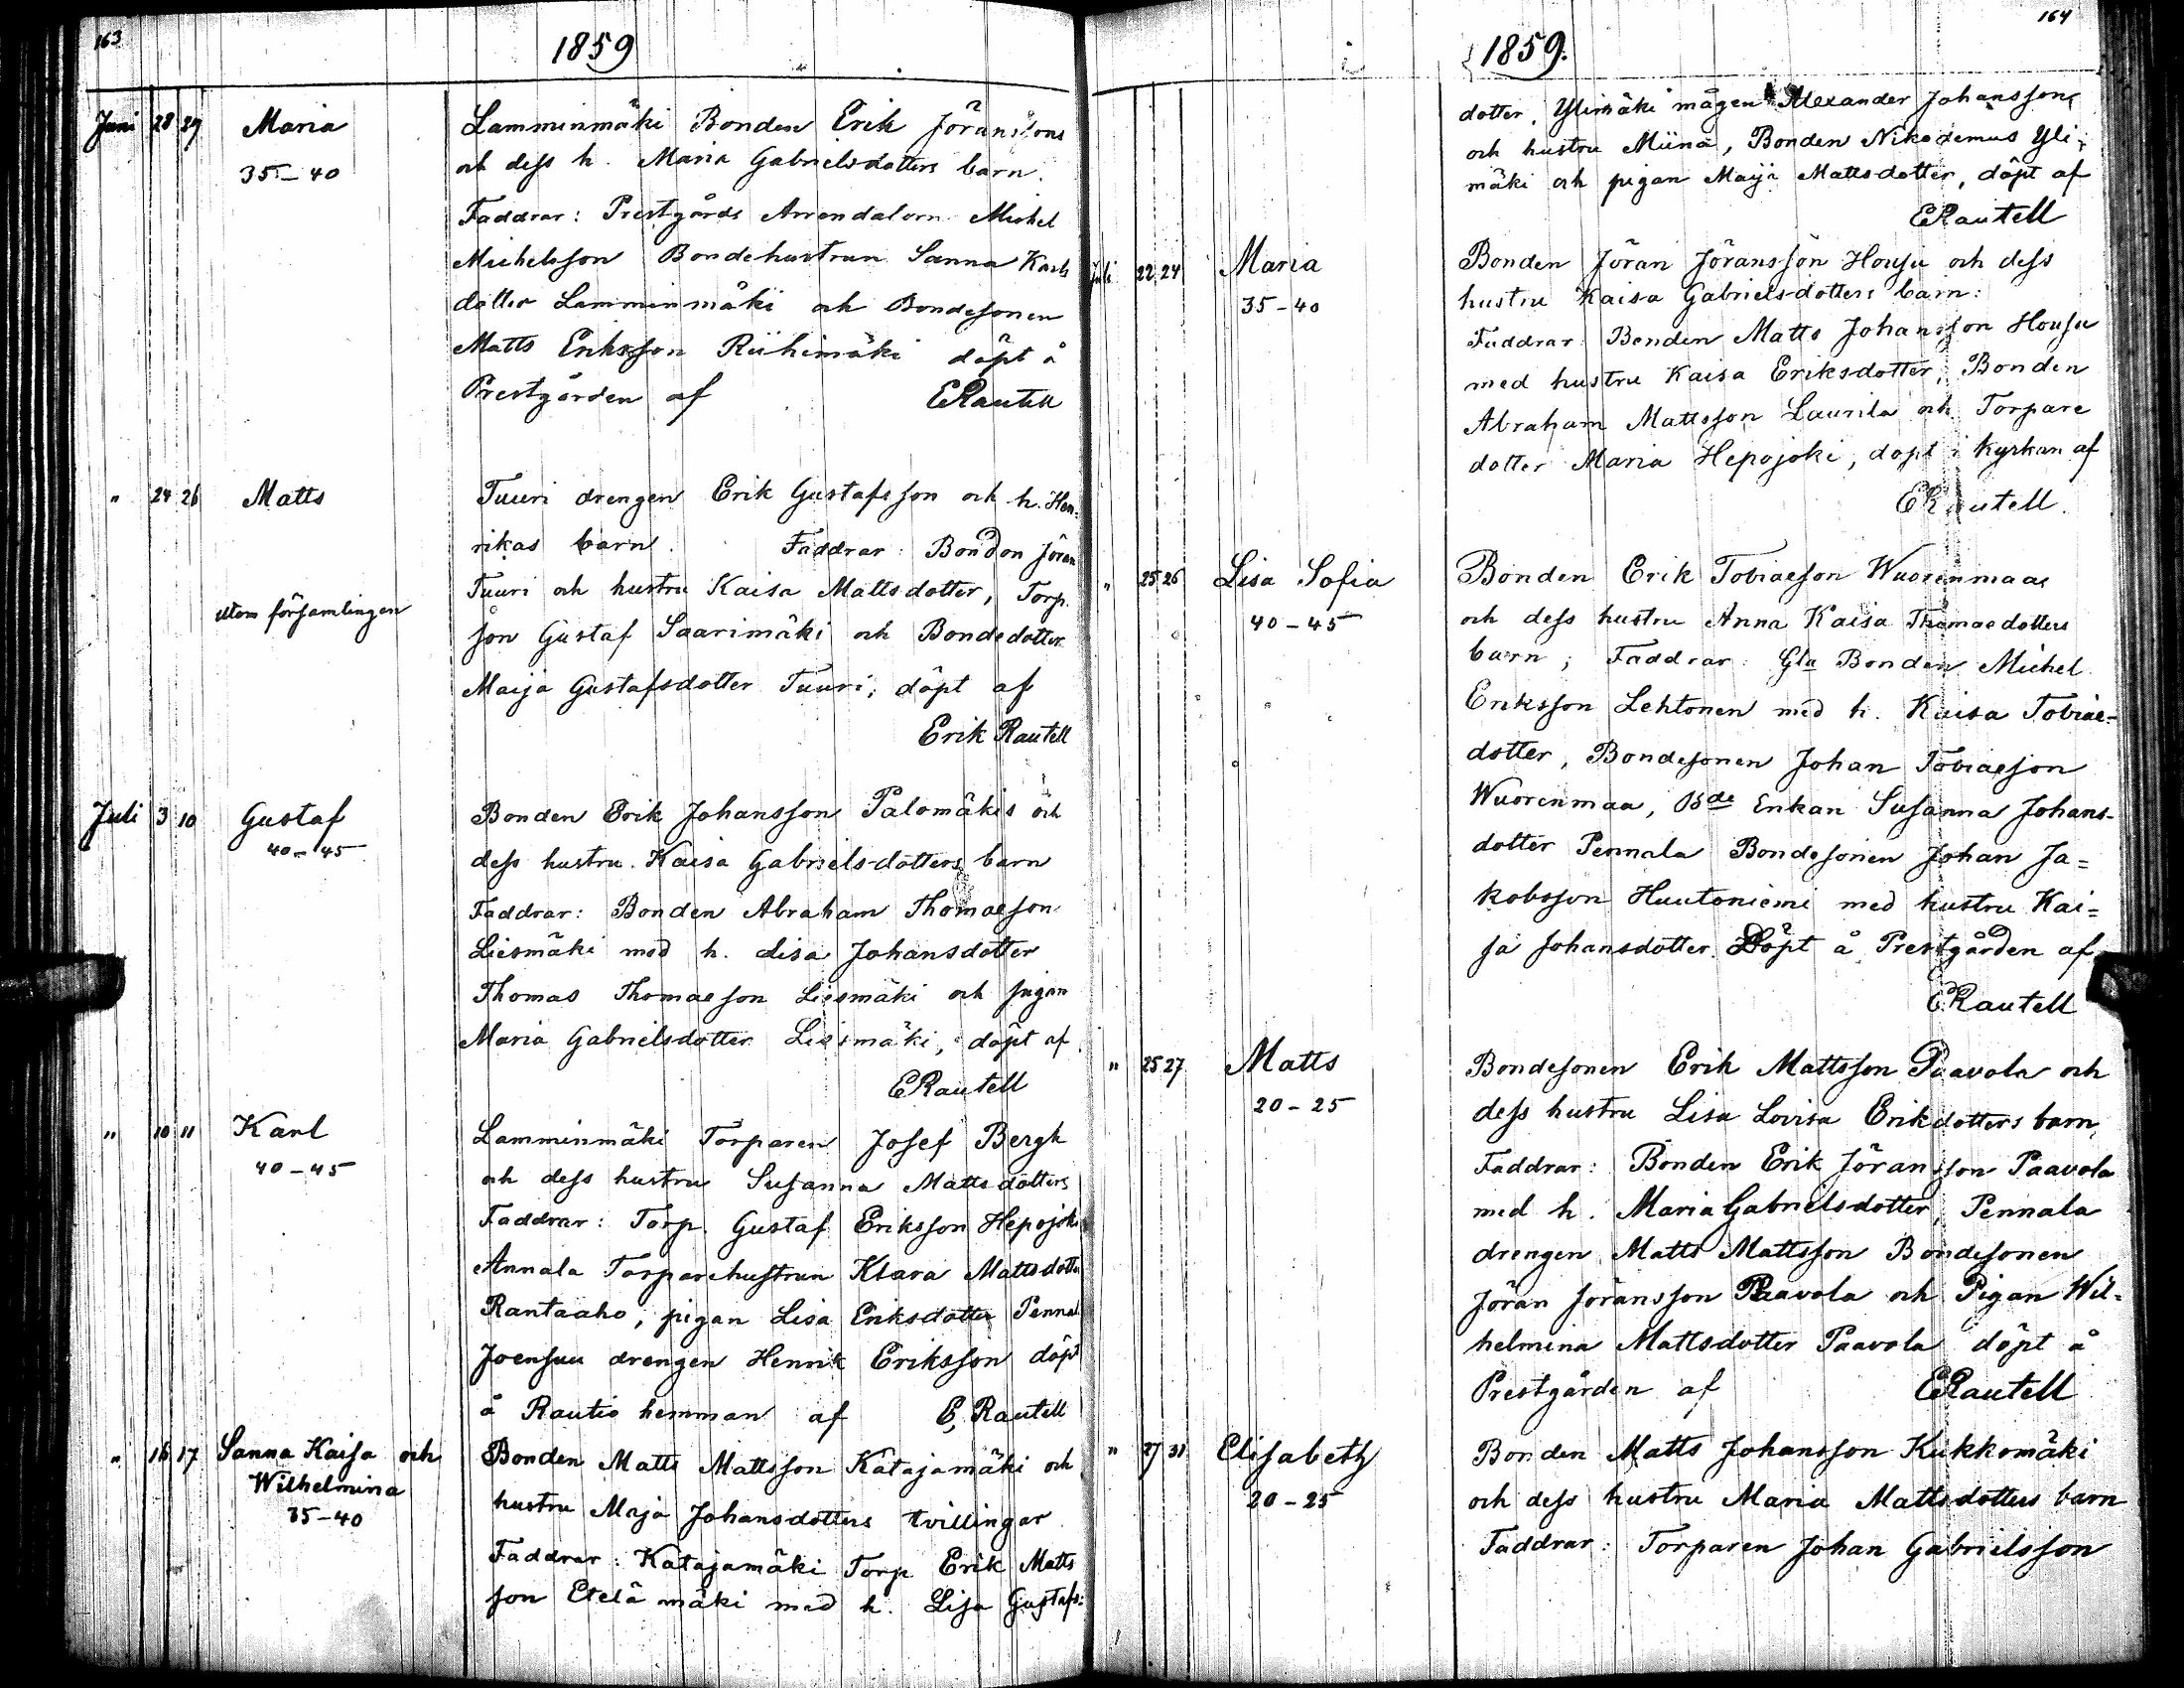 163
1859
Juni 28 29 Maria
35-40
Lamminmäki Bonden Erik Jöranssons
och dess h. Maria Gabrielsdotters barn.
Faddrar: Prestgårds Arrendatorn Michel
Michelsson Bondehustrun Sanna Karls
dotter Lamminmäki och Bondesonen
Matts Eriksson Riihimäki döpt å
Prestgården af ERautell
" 24 26 Matts
utom församlingen
Tuuri drengen Erik Gustafsson och h. Hen=
rikas barn. Faddrar: Bonden Jöran
Tuuri och hustru Kaisa Mattsdotter, Torp.
son Gustaf Saarimäki och Bondedotter
Maija Gustafsdotter Tuuri, döpt af
Erik Rautell
Juli 3 10 Gustaf
40-45
Bonden Erik Johansson Palomäkis och
dess hustru Kaisa Gabrielsdotters barn
Faddrar: Bonden Abraham Thomaeson
Liesmäki med h. Lisa Johansdotter
Thomas Thomaeson Liesmäki och pigan
Maria Gabrielsdotter Liesmäki, döpt af
ERautell
" 10 11 Karl
40-45
Lamminmäki Torparen Josef Bergh
och dess hustru Susanna Mattsdotters
Faddrar: Torp. Gustaf Eriksson Hepojoki
Annala Torparehustrun Klara Mattsdotter
Rantaaho, pigan Lisa Eriksdotter Pennal
Joensuu drengen Henrik Eriksson döpt
å Rautio hemman af E, Rautell
" 16 17 Sanna Kaisa och
Wilhelmina
35-40
Bonden Matts Mattsson Katajamäki och
hustru Maja Johansdotters tvillingar
Faddrar: Katajamäki Torp Erik Matts
son Etelä mäki med h. Lisa Gustafs:
164
1859.
dotter, Ylimäki mågen Alexander Johansson
och hustru Miina, Bonden Nikodemus Yli=
mäki och pigan Maija Mattsdotter, döpt af
ERautell
Juli 22 24 Maria
35-40
Bonden Jöran Jöransson Housu och dess
hustru Kaisa Gabrielsdotters barn:
Faddrar: Bonden Matts Johansson Housu
med hustru Kaisa Eriksdotter, Bonden
Abraham Mattsson Laurila och Torpare
dotter Maria Hepojoki, döpt i Kyrkan af
ERautell.
" 25 26 Lisa Sofia
40-45
Bonden Erik Tobiaeson Wuorenmaas
och dess hustru Anna Kaisa Thomaedotters
barn; Faddrar: Gla Bonden Michel
Eriksson Lehtonen med h. Kaisa Tobiae=
dotter, Bondesonen Johan Tobiaeson
Wuorenmaa, Bde Enkan Susanna Johans-
dotter Pennala Bondesonen Johan Ja=
kobsson Huutoniemi med hustru Kai=
sa Johansdotter. Döpt å Prestgården af
ERautell
" 25 27 Matts
20-25
Bondesonen Erik Mattsson Paavola och
dess hustru Lisa Lovisa Erikdotters barn,
Faddrar: Bonden Erik Jöransson Paavola
med h. Maria Gabrielsdotter, Pennala
drengen Matts Mattsson Bondesonen
Jöran Jöransson Paavola och Pigan Wil=
helmina Mattsdotter Paavola döpt å
Prestgården af ERautell
" 27 31 Elisabeth
20-25
Bonden Matts Johansson Kukkomäki
och dess hustru Maria Mattsdotters barn
Faddrar: Torparen Johan Gabrielsson